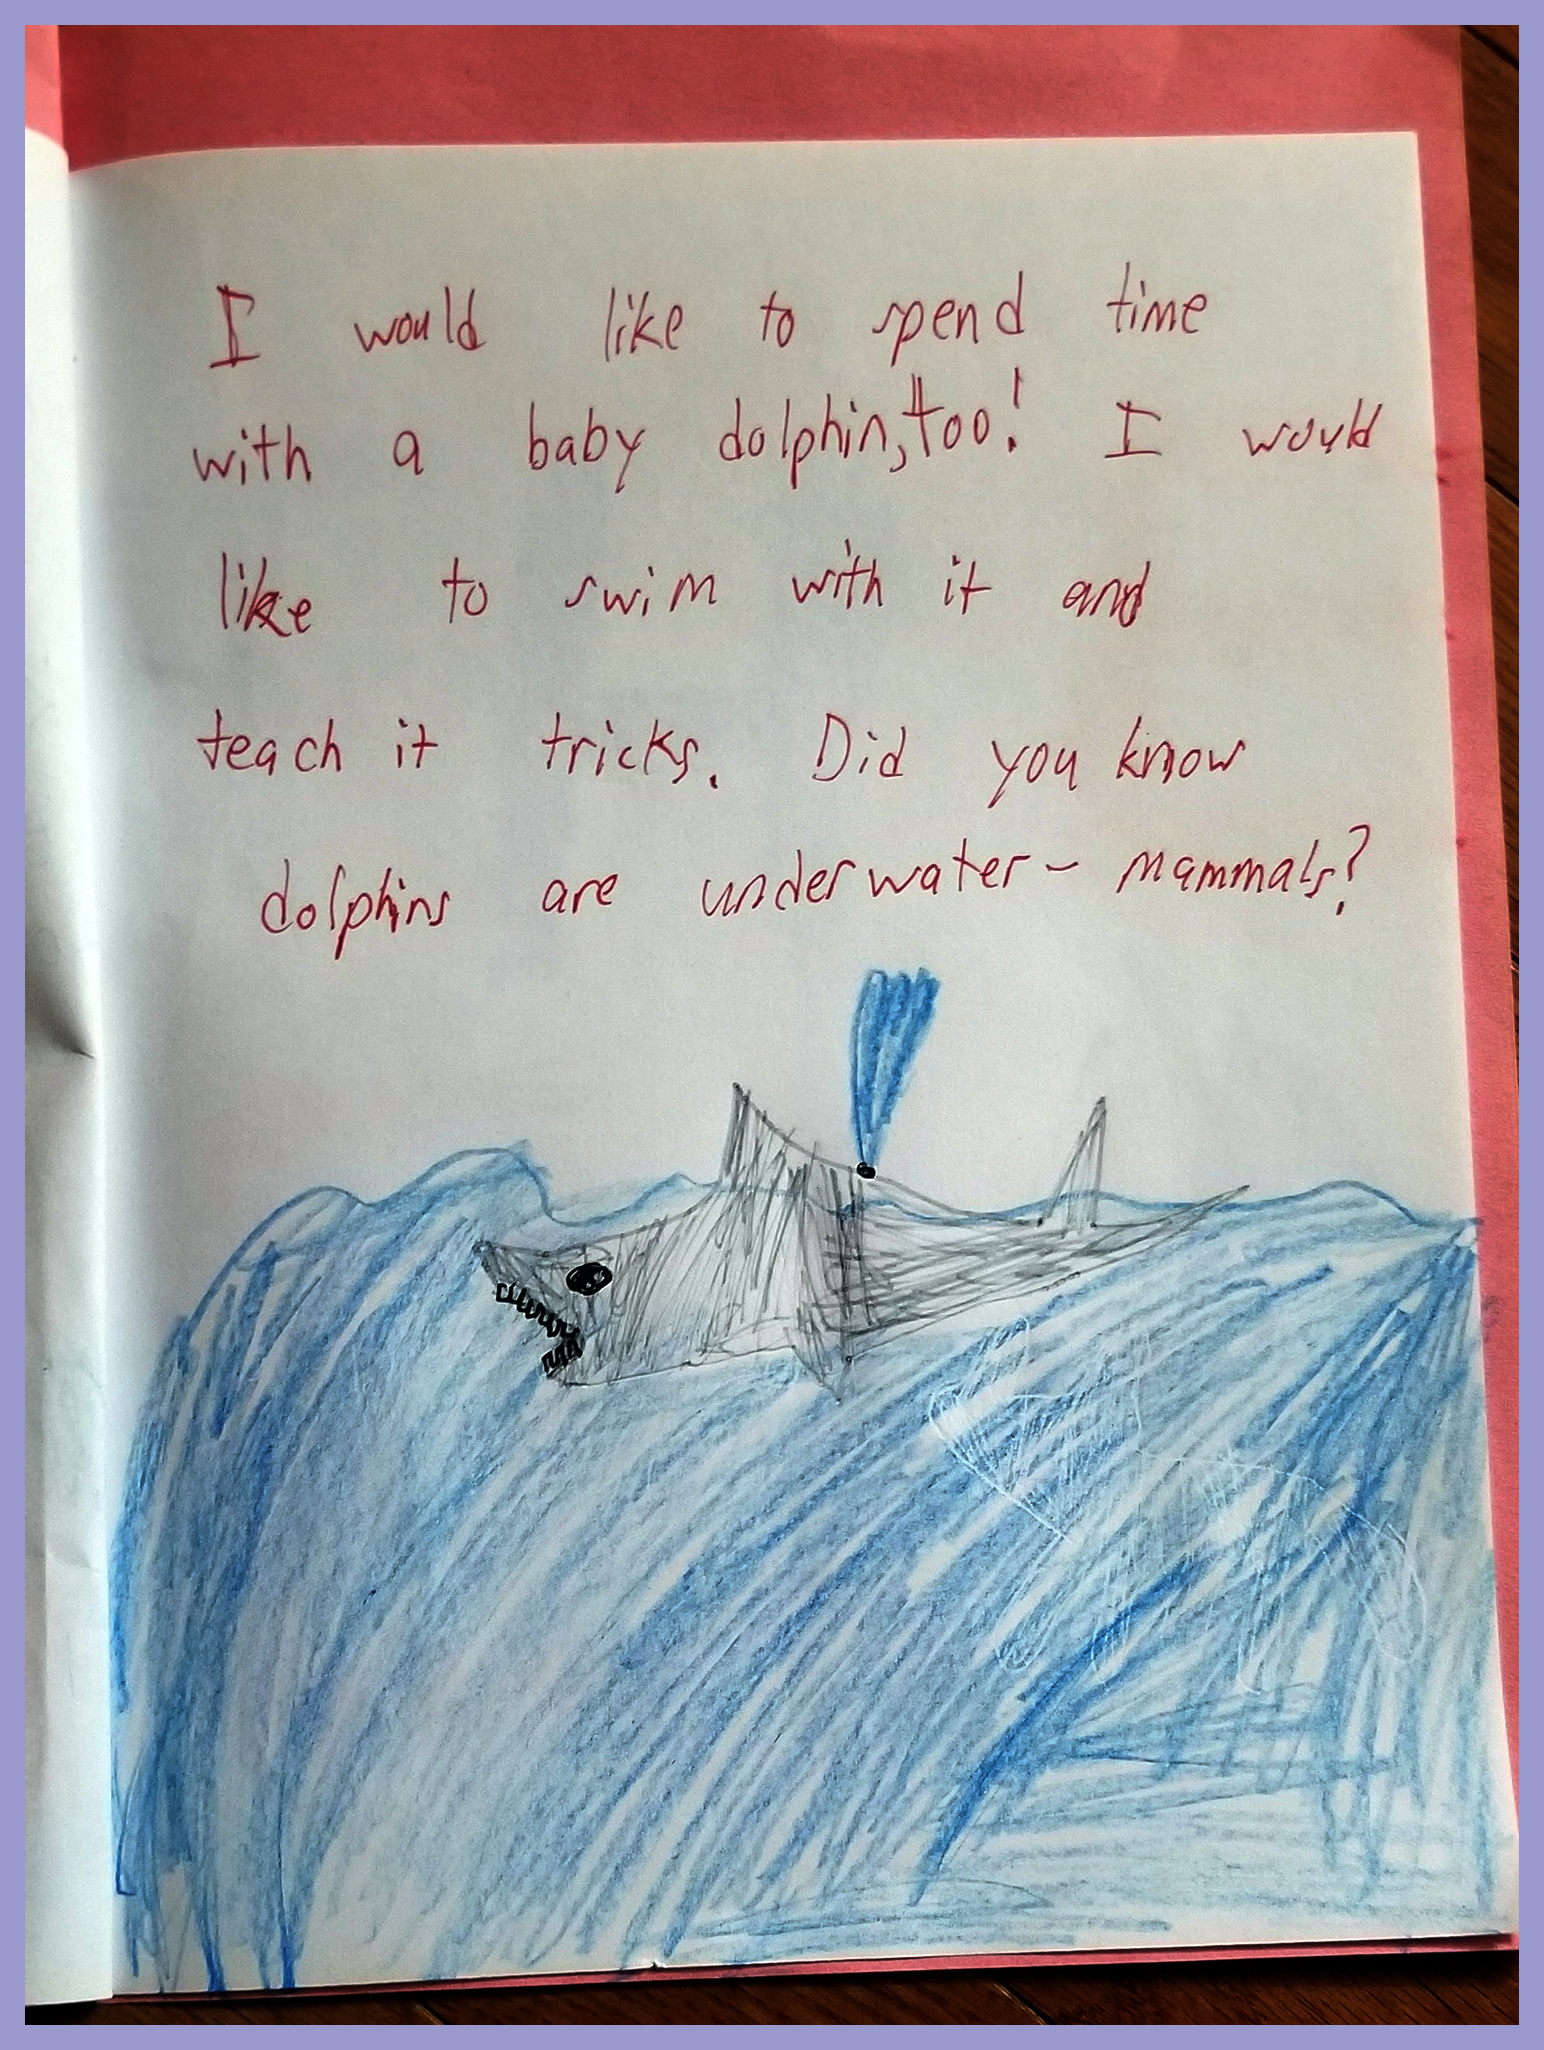 I would like to spend time
with a baby dolphin, too! I would
like to swim with it and
teach it tricks. Did you know
dolphins are underwater- mammals?